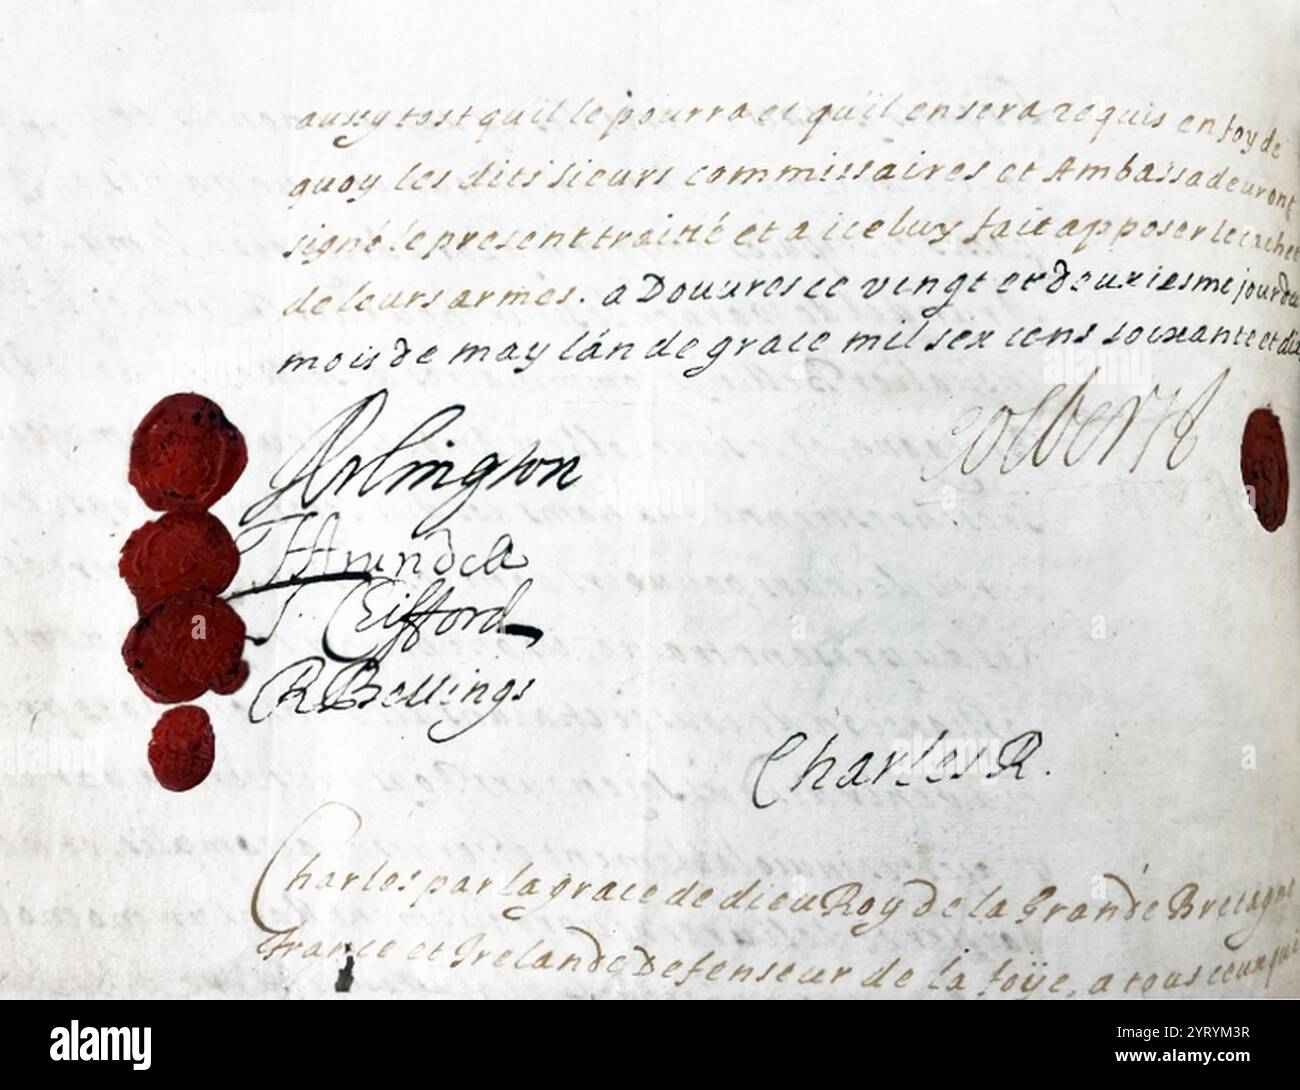 aussytost qu'il le pourra et qu'il en sera requis en foy de
quoy les dits sieurs commissaires et Ambassadeur ont
signé le present traitté et a iceluy fait apposer le cachet
de leurs armes. a Douures ce vingt et deuxiesme jour du
mois de may l'an de grace mil six cens soixante et dix
Colbert
Arlington
TArundell
T. Clifford
R Bellings
Charles R.
Charles par la grace de dieu Roy de la Grande Bretagne
France et Irelande Defenseur de la foÿe, a tous ceux qui
alamy
Image ID: 2YRYM3R
www.alamy.com